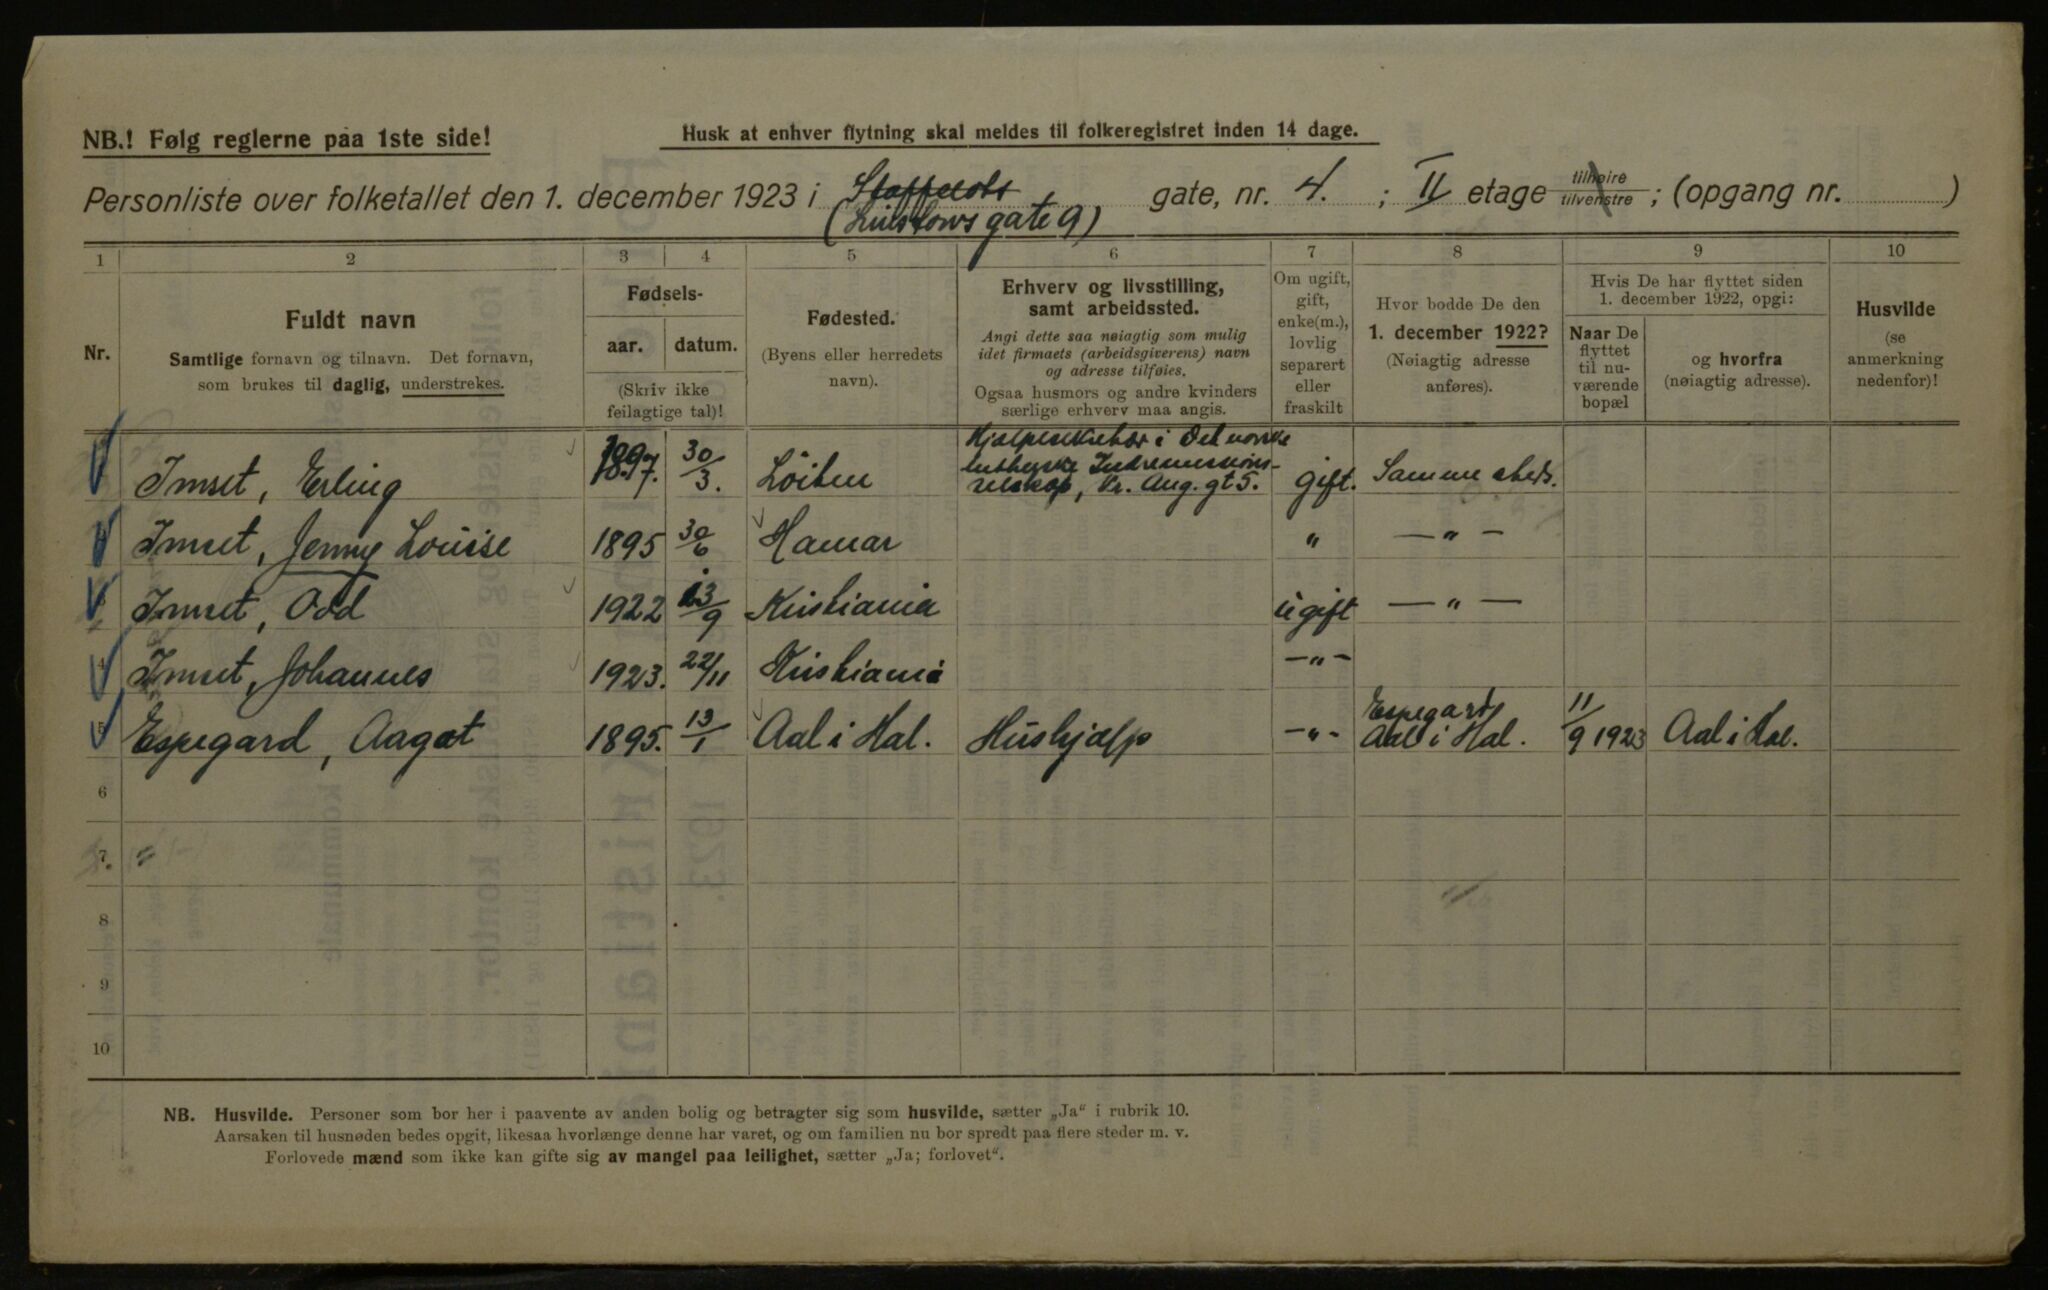 NB.! Følg reglerne paa 1ste side!
Husk at enhver flytning skal meldes til folkeregistret inden 14 dage.
Personliste over folketallet den 1. december 1923 i Staffeldts gate, nr. 4. ; II etage tilhøire tilvenstre ; (opgang nr. )
(Linstows gate 9)
1 2 3 4 5 6 7 8 9 10
Nr.
Fuldt navn
Samtlige fornavn og tilnavn. Det fornavn,
som brukes til daglig, understrekes.
Fødsels-
aar. datum.
(Skriv ikke
feilagtige tal)!
Fødested.
(Byens eller herredets
navn).
Erhverv og livsstilling,
samt arbeidssted.
Angi dette saa nøiagtig som mulig
idet firmaets (arbeidsgiverens) navn
og adresse tilføies.
Ogsaa husmors og andre kvinders
særlige erhverv maa angis.
Om ugift,
gift,
enke(m.),
lovlig
separert
eller
fraskilt
Hvor bodde De den
1. december 1922?
(Nøiagtig adresse
anføres).
Hvis De har flyttet siden
1. december 1922, opgi:
Naar De
flyttet
til nu-
værende
bopæl
og hvorfra
(nøiagtig adresse).
Husvilde
(se
anmerkning
nedenfor)!
Imset, Erling 1897. 30/3. Löiten Hjælpesekretær i Det norske
lutherske Indremissions-
selskap, Kr. Aug. gt 5. gift. Samme steds.
Imset, Jenny Louise 1895 30/6 Hamar " — " —
Imset, Odd 1922 13/9 Kristiania ugift — " —
4 Imset, Johannes 1923. 22/11 Kristiania — " —
5 Espegard, Aagot 1895. 13/1 Aal i Hal. Hushjælp — " — Espegard, Aal i Hal. 11/9 1923 Aal i Hal.
6
7. "
8
9
10
NB. Husvilde. Personer som bor her i paavente av anden bolig og betragter sig som husvilde, sætter „Ja“ i rubrik 10.
Aarsaken til husnøden bedes opgit, likesaa hvorlænge denne har varet, og om familien nu bor spredt paa flere steder m. v.
Forlovede mænd som ikke kan gifte sig av mangel paa leilighet, sætter „Ja; forlovet“.